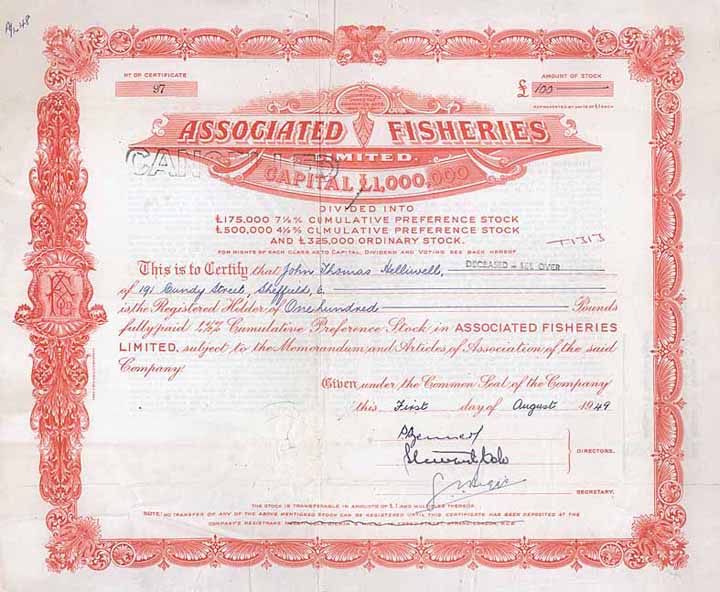 No OF CERTIFICATE
97
AMOUNT OF STOCK
£ 100
REPRESENTED BY UNITS OF £1 EACH
ASSOCIATED FISHERIES
LIMITED.
CANCELLED
CAPITAL £1,000,000
DIVIDED INTO
£175,000 7½% CUMULATIVE PREFERENCE STOCK
£500,000 4½% CUMULATIVE PREFERENCE STOCK
AND £325,000 ORDINARY STOCK.
T1313
FOR RIGHTS OF EACH CLASS AS TO CAPITAL, DIVIDEND AND VOTING SEE BACK HEREOF
This is to Certify that John Thomas Helliwell, DECEASED - SEE OVER
of 191 Cundy Street, Sheffield, 6.
is the Registered Holder of One hundred Pounds
fully paid 4½% Cumulative Preference Stock in ASSOCIATED FISHERIES
LIMITED, subject to the Memorandum and Articles of Association of the said
Company.
Given under the Common Seal of the Company
this First day of August 1949
DIRECTORS.
SECRETARY.
THE STOCK IS TRANSFERABLE IN AMOUNTS OF £1 AND MULTIPLES THEREOF.
NOTE: NO TRANSFER OF ANY OF THE ABOVE MENTIONED STOCK CAN BE REGISTERED UNTIL THIS CERTIFICATE HAS BEEN DEPOSITED AT THE
COMPANY'S REGISTRARS